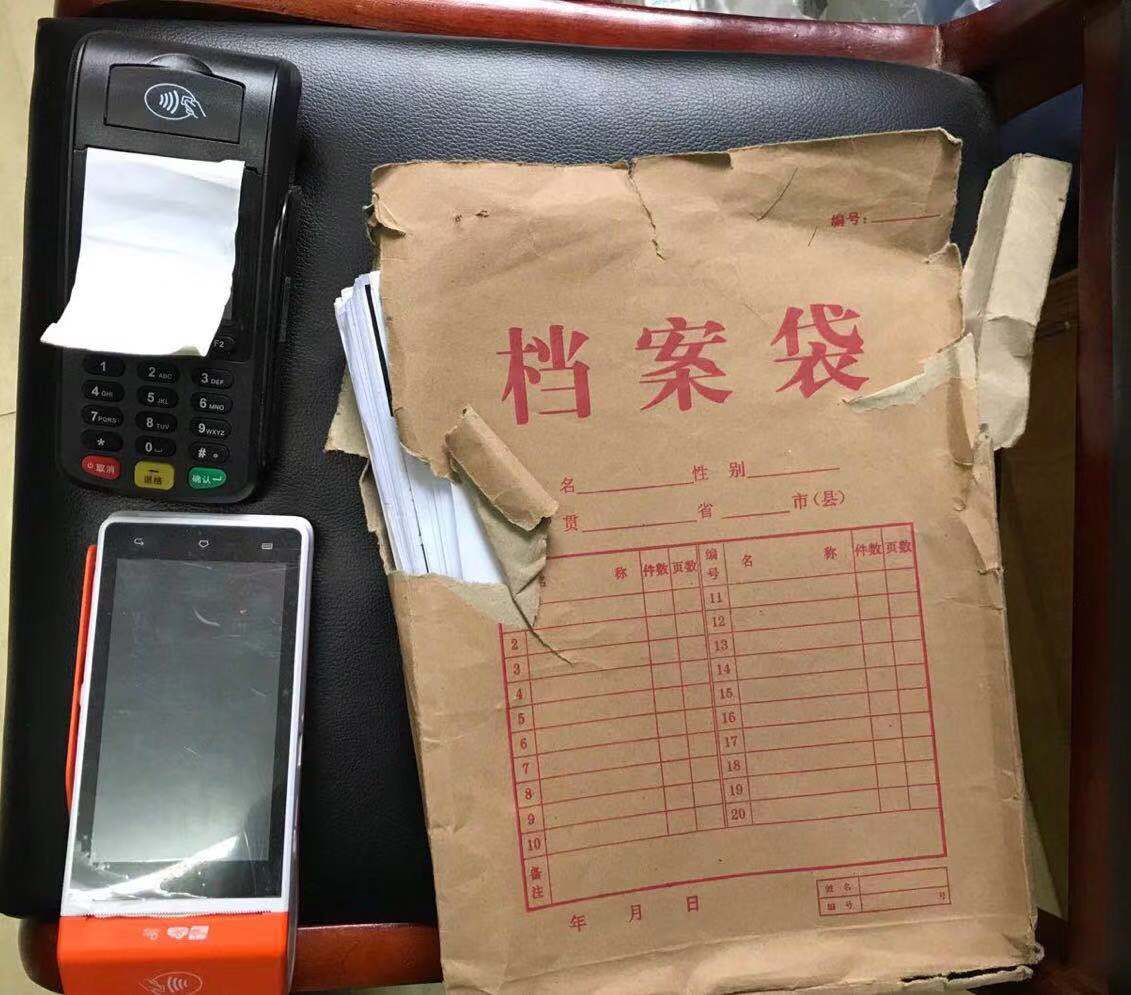 F2
1
2 ABC
3 DEF
4 GHI
5 JKL
6 MNO
7 PQRS
8 TUV
9 WXYZ
*
0
#
取消
退格
确认
编号：
档案袋
名 性 别
贯 省 市（县）
称 件数 页数 编号 名 称 件数 页数
11
2 12
3 13
4 14
5 15
6 16
7 17
8 18
9 19
10 20
备注
年 月 日
姓 名
编 号 号